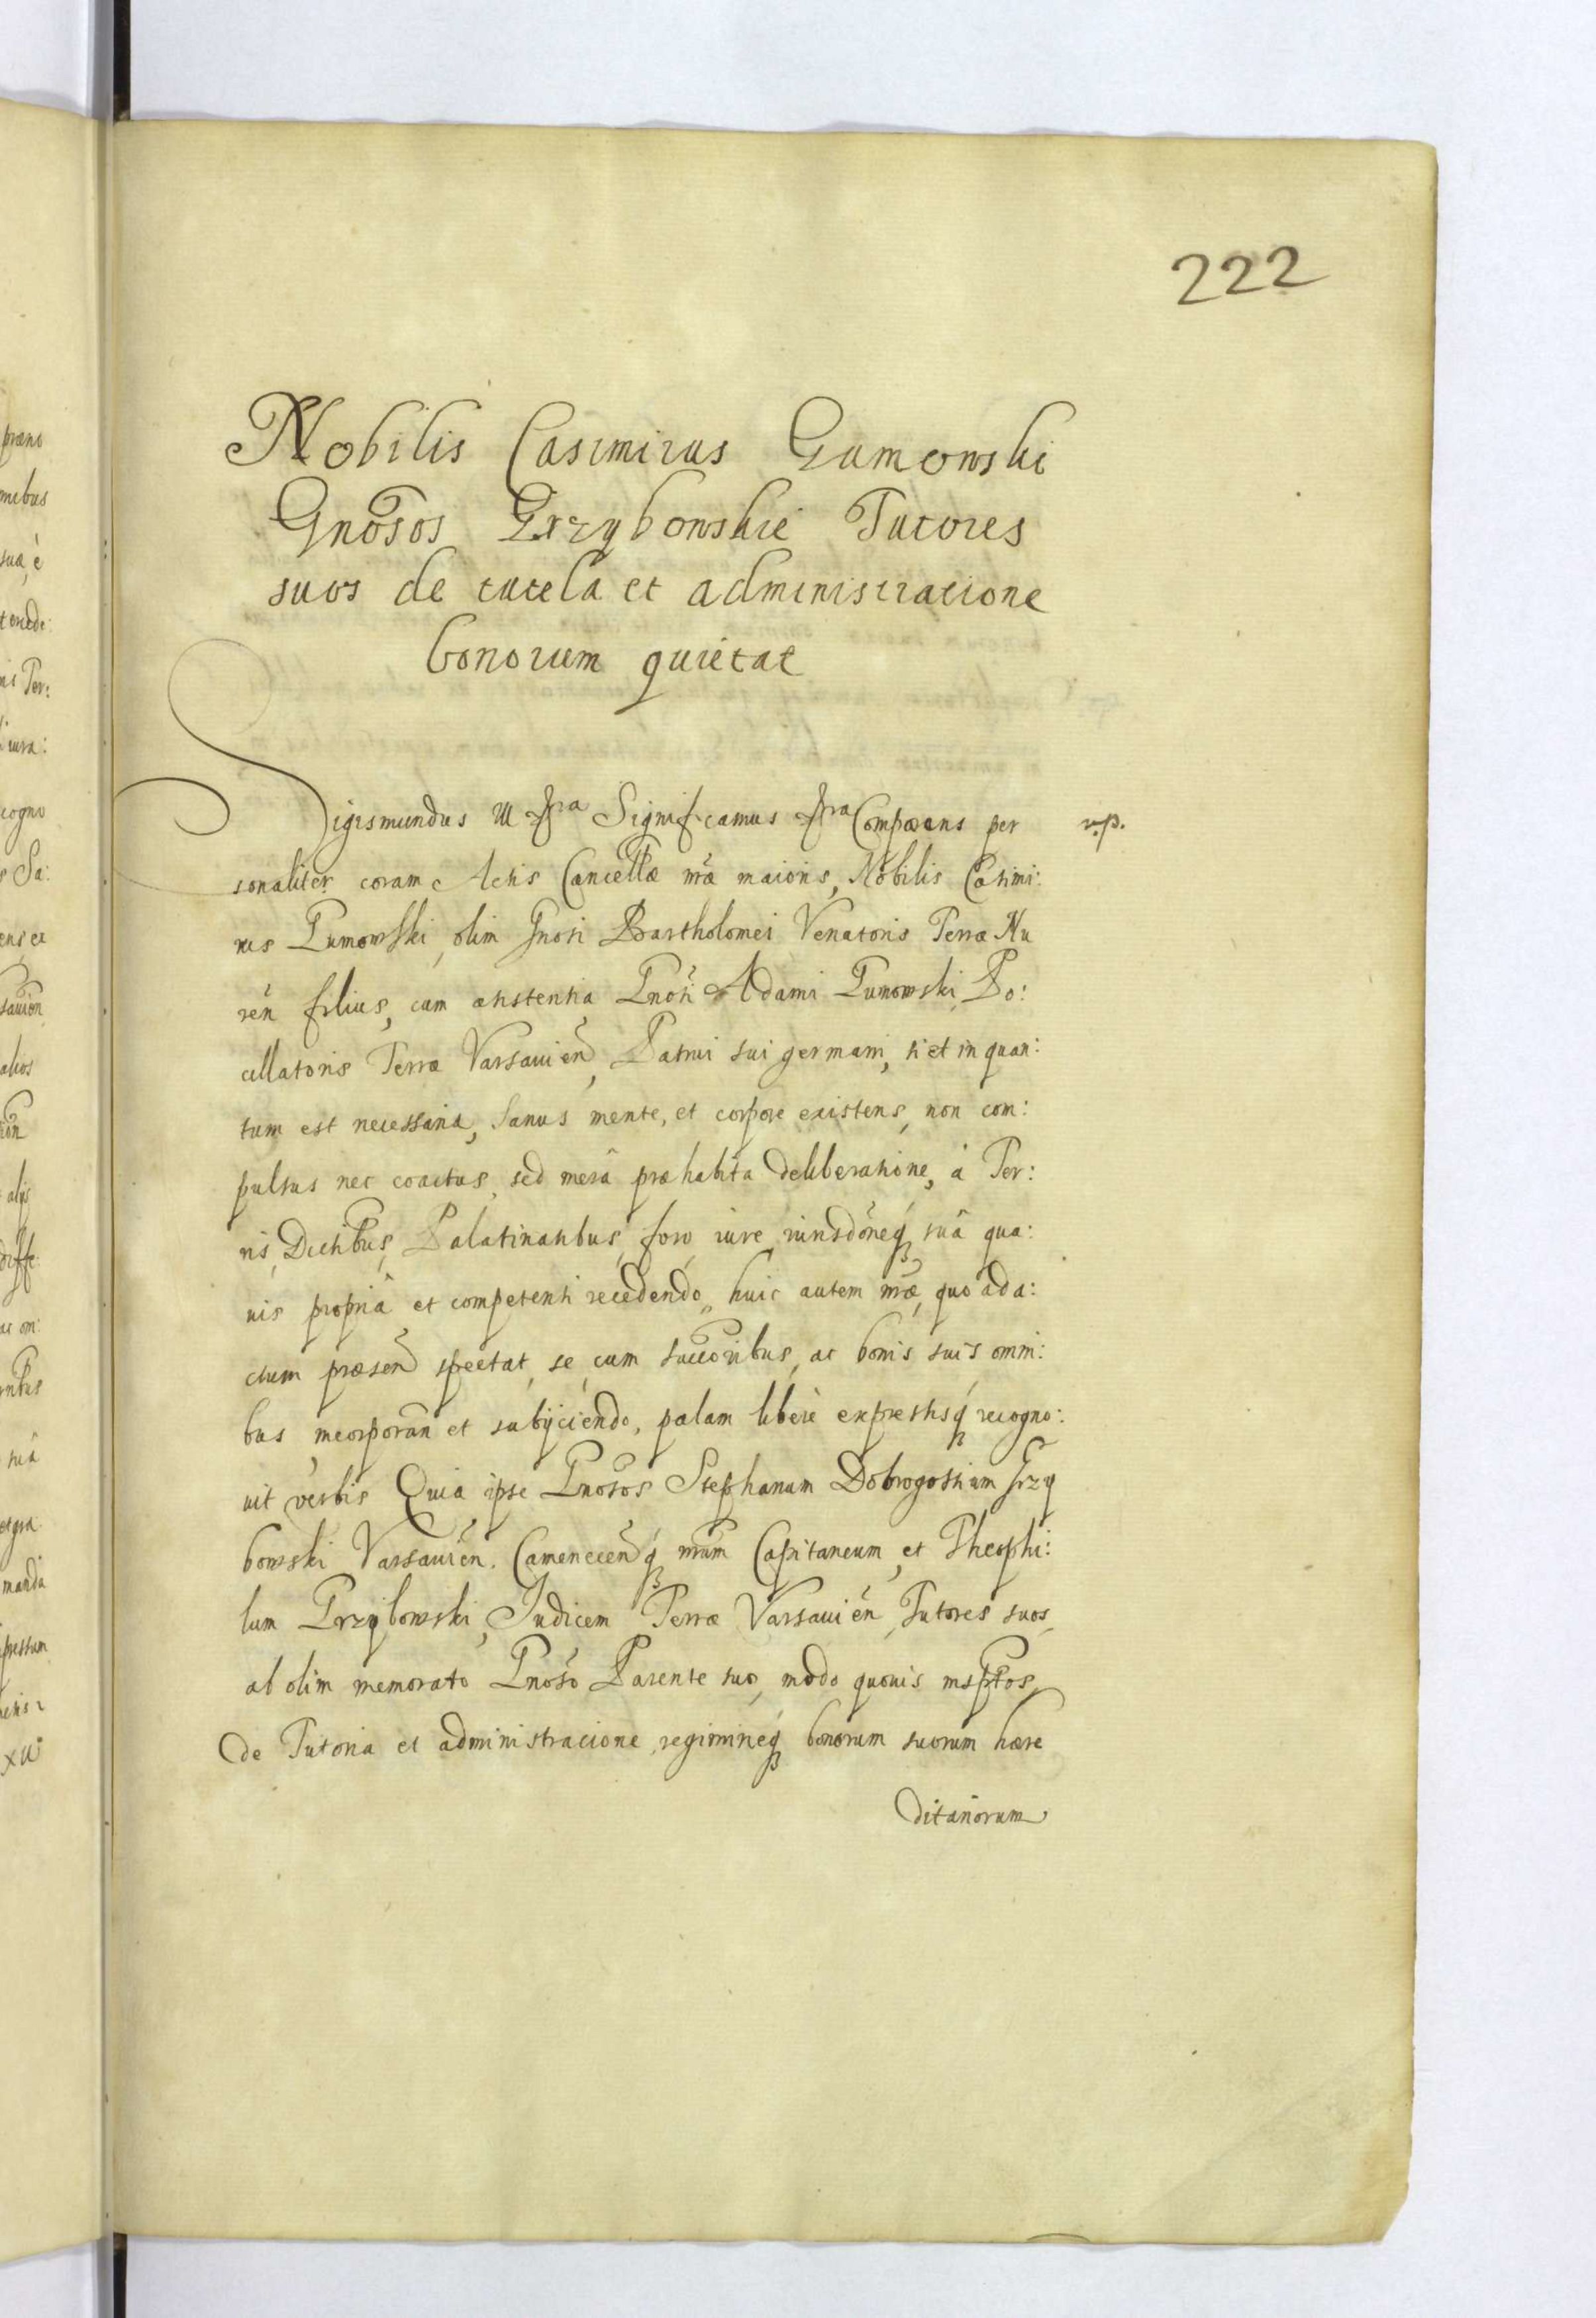 222
Nobilis Casimirus Gumowski
Gnõsos Grzybowskie Tutores
suos de tutela et administratione
bonorum quietat
Sigismundus III &ra Significamus &ra Comparens per v.p.
sonaliter coram Actis Cancellæ nr̃æ maioris, Nobilis Casimi:
rus Gumowski, olim Gnosi Bartholomei Venatoris Terræ Nu
reñ filius, cum assistentia Gnosi Adami Gumowski, Po:
cillatoris Terræ Varsauieñ, Patrui sui germani, si et in quan:
tum est necessaria, Sanus mente, et corpore existens, non com:
pulsus nec coactus, sed merâ præhabita deliberatione, à Ter:
ris, Dictibus, Palatinatibus, foro iure iurisdõneq́ suâ qua:
uis propriâ et competenti recedendo, huic autem nr̃æ, quo ad a:
ctum præseñ spectat, se cum succõribus, ac bonis suis omni:
bus incorporañ et subÿciendo, palam liberè expressisq́ recogno:
uit verbis Quia ipse Gnosos Stephanum Dobrogostium Grzy
bowski Varsauieñ. Cameneceñq́ nr̃um Capitaneum, et Theophi:
lum Grzybowski, Iudicem Terræ Varsauieñ, Tutores suos,
ab olim memorato Gnoso Parente suo, modo quouis insc̃ptos,
de Tutoria et administracione, regimineq́ bonorum suorum hære
ditariorum